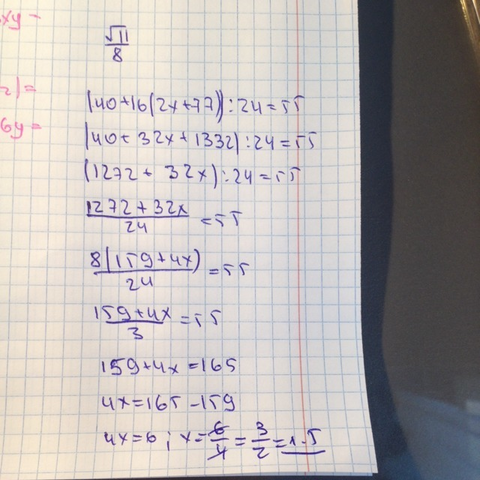 xy -
√11/8
(40+16(2x+77)):24=55
2)=
(40+32x+1332):24=55
6y=
(1272+32x):24=55
1272+32x/24=55
8(159+4x)/24=55
159+4x/3=55
159+4x=165
4x=165-159
4x=6; x=6/4=3/2=1.5